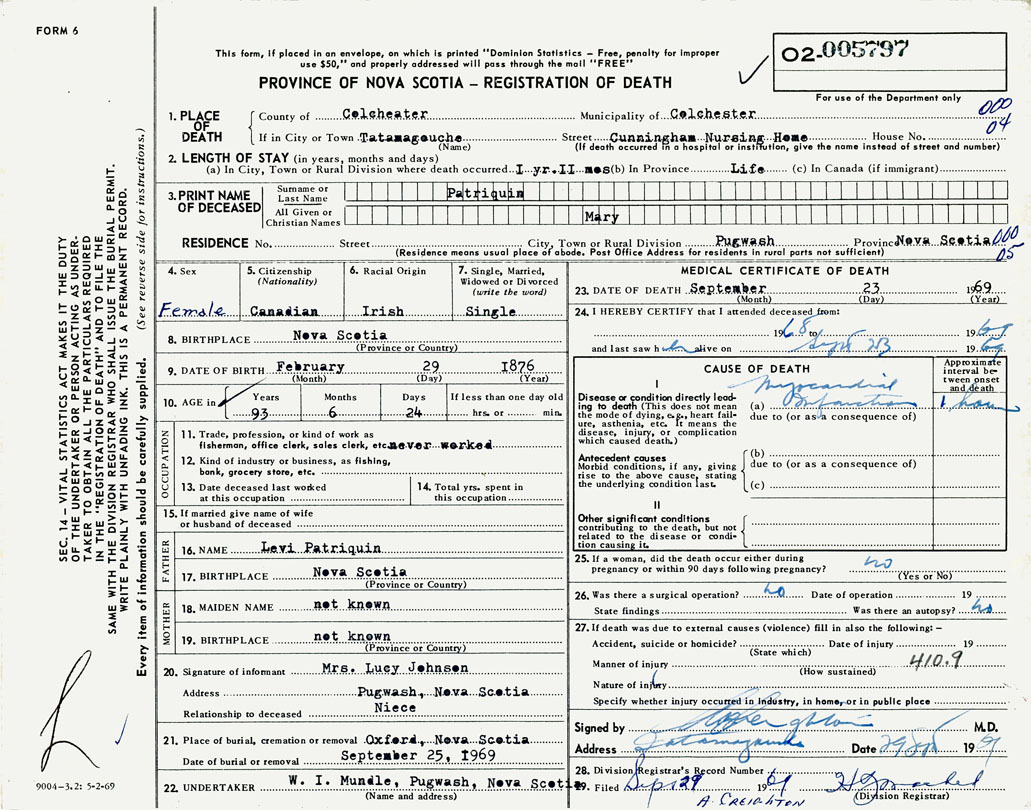 FORM 6
This form, if placed in an envelope, on which is printed "Dominion Statistics – Free, penalty for improper
use $50," and properly addressed will pass through the mail "FREE"
PROVINCE OF NOVA SCOTIA – REGISTRATION OF DEATH
02-005797
For use of the Department only
000
04
1. PLACE OF DEATH
County of Colchester Municipality of Colchester
If in City or Town Tatamagouche Street Cunningham Nursing Home House No.
(Name) (If death occurred in a hospital or institution, give the name instead of street and number)
2. LENGTH OF STAY (in years, months and days)
(a) In City, Town or Rural Division where death occurred I yr.II mos (b) In Province Life (c) In Canada (if immigrant)
3. PRINT NAME OF DECEASED
Surname or Last Name Patriquin
All Given or Christian Names Mary
RESIDENCE No. Street City, Town or Rural Division Pugwash Province Nova Scotia 000
(Residence means usual place of abode. Post Office Address for residents in rural parts not sufficient) 05
4. Sex Female
5. Citizenship (Nationality) Canadian
6. Racial Origin Irish
7. Single, Married, Widowed or Divorced (write the word) Single
8. BIRTHPLACE Nova Scotia
(Province or Country)
9. DATE OF BIRTH February 29 1876
(Month) (Day) (Year)
10. AGE in Years Months Days If less than one day old
93 6 24 hrs. or min.
OCCUPATION
11. Trade, profession, or kind of work as
fisherman, office clerk, sales clerk, etc. never worked
12. Kind of industry or business, as fishing,
bank, grocery store, etc.
13. Date deceased last worked
at this occupation
14. Total yrs. spent in
this occupation
15. If married give name of wife
or husband of deceased
FATHER
16. NAME Levi Patriquin
17. BIRTHPLACE Nova Scotia
(Province or Country)
MOTHER
18. MAIDEN NAME not known
19. BIRTHPLACE not known
(Province or Country)
20. Signature of informant Mrs. Lucy Johnson
Address Pugwash, Nova Scotia
Relationship to deceased Niece
21. Place of burial, cremation or removal Oxford, Nova Scotia
Date of burial or removal September 25, 1969
22. UNDERTAKER W. I. Mundle, Pugwash, Nova Scotia
(Name and address)
MEDICAL CERTIFICATE OF DEATH
23. DATE OF DEATH September 23 1969
(Month) (Day) (Year)
24. I HEREBY CERTIFY that I attended deceased from:
1968 to 1969
and last saw her alive on Sept 23 1969
CAUSE OF DEATH
Approximate
interval be-
tween onset
and death
I
Disease or condition directly lead-
ing to death (This does not mean
the mode of dying, e.g., heart fail-
ure, asthenia, etc. It means the
disease, injury, or complication
which caused death.)
Myocardial
(a) Infarction 1 hour
due to (or as a consequence of)
Antecedent causes
Morbid conditions, if any, giving
rise to the above cause, stating
the underlying condition last.
(b)
due to (or as a consequence of)
(c)
II
Other significant conditions
contributing to the death, but not
related to the disease or condi-
tion causing it.
25. If a woman, did the death occur either during
pregnancy or within 90 days following pregnancy? no
(Yes or No)
26. Was there a surgical operation? no Date of operation 19
State findings Was there an autopsy? no
27. If death was due to external causes (violence) fill in also the following: –
Accident, suicide or homicide? Date of injury 19
(State which)
Manner of injury 410.9
(How sustained)
Nature of injury
Specify whether injury occurred in industry, in home, or in public place
Signed by M.D.
Address Tatamagouche Date 29 Sept 1969
28. Division Registrar's Record Number
29. Filed Sept 29 1969
(Division Registrar)
A. CREIGHTON
SEC. 14 – VITAL STATISTICS ACT MAKES IT THE DUTY
OF THE UNDERTAKER OR PERSON ACTING AS UNDER-
TAKER TO OBTAIN ALL THE PARTICULARS REQUIRED
IN THE "REGISTRATION OF DEATH" AND TO FILE THE
SAME WITH THE DIVISION REGISTRAR WHO SHALL ISSUE THE BURIAL PERMIT.
WRITE PLAINLY WITH UNFADING INK. THIS IS A PERMANENT RECORD.
Every item of information should be carefully supplied. (See reverse side for instructions.)
9004–3.2: 5-2-69